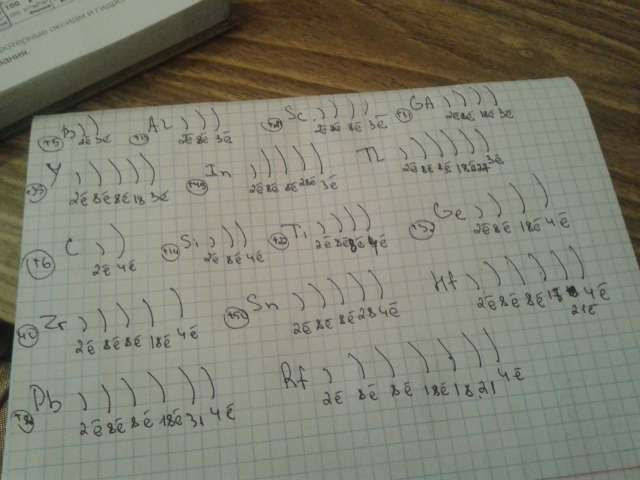 100
ифотерные оксиды и гидро
вания.
+5 B ) ) 2ē 3ē
+13 Al ) ) ) 2ē 8ē 3ē
+21 Sc ) ) ) ) 2ē 8ē 8ē 3ē
+31 GA ) ) ) ) 2ē 8ē 18ē 3ē
+39 Y ) ) ) ) ) 2ē 8ē 8ē 18 3ē
+49 In ) ) ) ) ) 2ē 8ē 8ē 28ē 3ē
Tl ) ) ) ) ) ) 2ē 8ē 8ē 18ē 3ē
+6 C ) ) 2ē 4ē
+14 Si ) ) ) 2ē 8ē 4ē
+22 Ti ) ) ) ) 2ē 8ē 8ē 4ē
+32 Ge ) ) ) ) 2ē 8ē 18ē 4ē
40 Zr ) ) ) ) ) 2ē 8ē 8ē 18ē 4ē
+50 Sn ) ) ) ) ) 2ē 8ē 8ē 28 4ē
Hf ) ) ) ) ) ) 2ē 8ē 8ē 4ē
21ē
+82 Pb ) ) ) ) ) ) 2ē 8ē 8ē 18ē 31 4ē
Rf ) ) ) ) ) ) ) 2ē 8ē 8ē 18ē 18 21 4ē